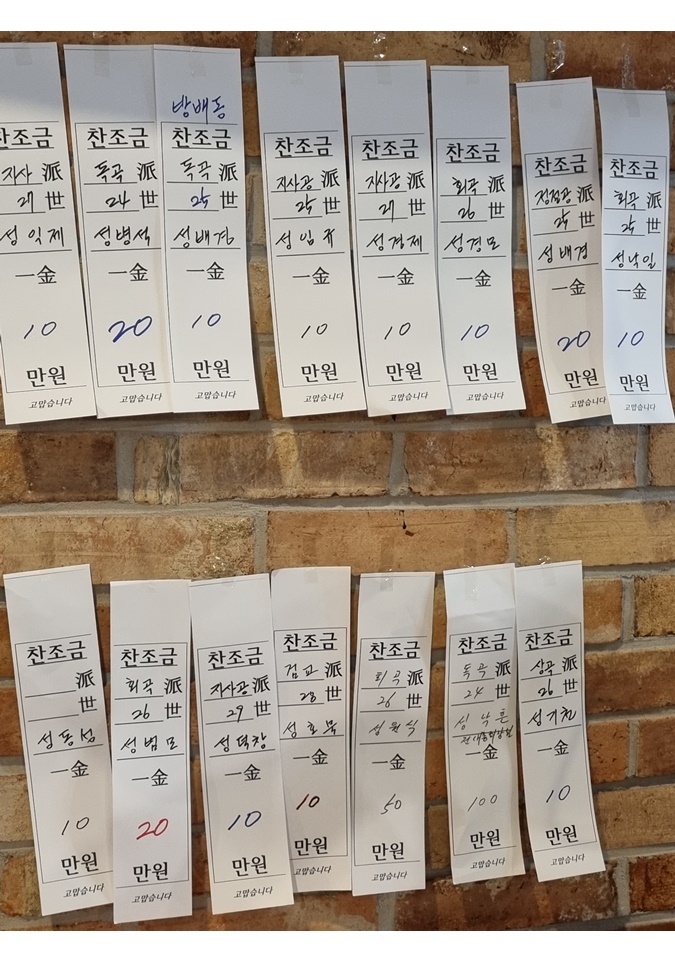 찬조금
지사 派
27 世
성익제
一金
10
만원
고맙습니다
찬조금
독곡 派
24 世
성병석
一金
20
만원
고맙습니다
방배동
찬조금
독곡 派
25 世
성배경
一金
10
만원
고맙습니다
찬조금
지사공 派
25 世
一金
10
만원
고맙습니다
찬조금
지사공 派
27 世
성경제
一金
10
만원
고맙습니다
찬조금
회곡 派
26 世
성경모
一金
10
만원
고맙습니다
찬조금
派
25 世
성배경
一金
20
만원
고맙습니다
찬조금
회곡 派
25 世
성낙일
一金
10
만원
고맙습니다
찬조금
派
世
성동섭
一金
10
만원
고맙습니다
찬조금
회곡 派
26 世
성범모
一金
20
만원
고맙습니다
찬조금
지사공 派
29 世
성덕창
一金
10
만원
고맙습니다
찬조금
검교 派
28 世
一金
10
만원
고맙습니다
찬조금
회곡 派
26 世
성원식
一金
50
만원
고맙습니다
찬조금
독곡 派
24 世
一金
100
만원
고맙습니다
찬조금
상곡 派
26 世
성기천
一金
10
만원
고맙습니다